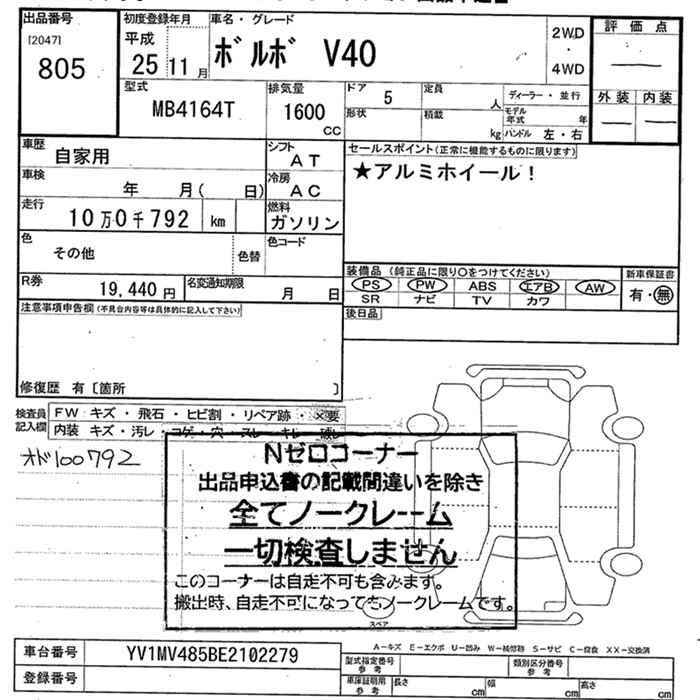 出品番号
[2047]
805
初度登録年月
平成
25 11 月
車名・グレード
ボルボ V40
2WD
・
4WD
評価点
外装 内装
型式
MB4164T
排気量
1600
CC
ドア
5
形状
定員
人
積載
kg
ディーラー・並行
モデル年式 年
ハンドル 左・右
車歴
自家用
シフト
AT
車検
年 月( 日)
冷房
AC
走行
10万0千792 km
燃料
ガソリン
色
その他
色替
色コード
R券
19,440円
名変通知期限
月 日
セールスポイント(正常に機能するものに限ります)
★アルミホイール!
装備品(純正品に限り○をつけてください)
PS PW ABS エアB AW
SR ナビ TV カワ
新車保証書
有・無
後日品
注意事項申告欄(不具合内容等は具体的に記入して下さい)
修復歴 有〔箇所 〕
検査員記入欄
FW キズ・飛石・ヒビ割・リペア跡・×要
内装 キズ・汚レ・コゲ・穴・スレ・キレ・破レ
オド100792
Nゼロコーナー
出品申込書の記載間違いを除き
全てノークレーム
一切検査しません
このコーナーは自走不可も含みます。
搬出時、自走不可になってもノークレームです。
スペア
A-キズ E-エクボ U-凹み W-補修跡 S-サビ C-腐食 XX-交換済
車台番号
YV1MV485BE2102279
登録番号
型式指定番号
参考
類別区分番号
参考
車庫証明用
参考
長さ cm 幅 cm 高さ cm